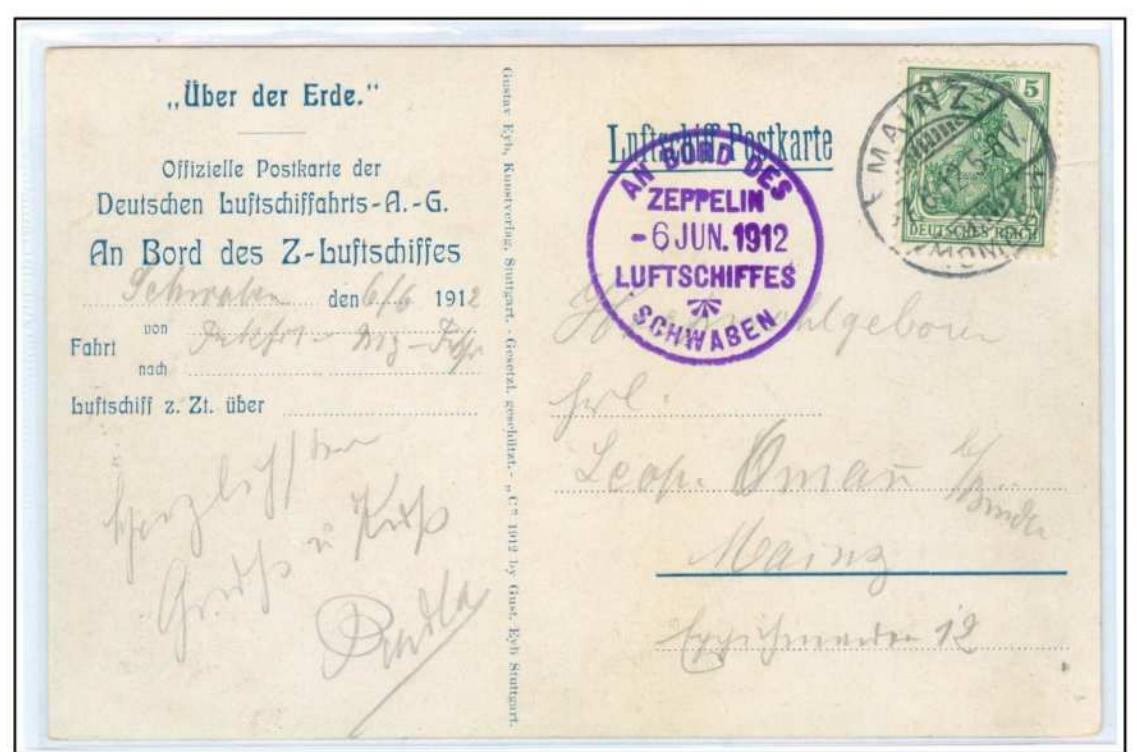 „Über der Erde."
Offizielle Postkarte der
Deutschen Luftschiffahrts-A.-G.
An Bord des Z-Luftschiffes
Schwaben den 6/6 1912
Fahrt von
nach
Luftschiff z. Zt. über
herzlichsten
Gruß u Kuß
Gustav Eyb, Kunstverlag, Stuttgart. - Gesetzl. geschützt. - „C" 1912 by Gust. Eyb Stuttgart.
Luftschiff-Postkarte
AN BORD DES
ZEPPELIN
-6 JUN. 1912
LUFTSCHIFFES
SCHWABEN
MAINZ
5
DEUTSCHES REICH
Frl.
Leop.
Mainz
12